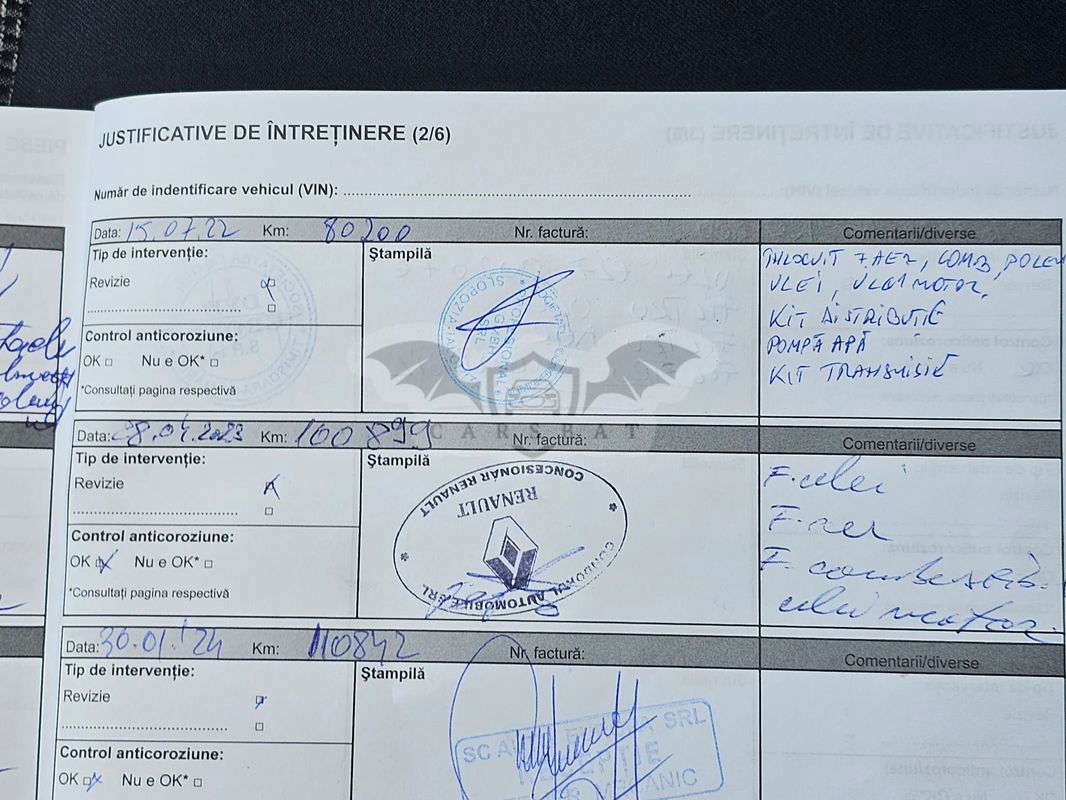 JUSTIFICATIVE DE ÎNTREȚINERE (2/6)
Număr de indentificare vehicul (VIN):
Data: 15.07.22 Km: 80200 Nr. factură: Comentarii/diverse
Tip de intervenție:
Revizie
Control anticoroziune:
OK Nu e OK*
*Consultați pagina respectivă
Ștampilă
SLOBOZIA
SRL
ÎNLOCUIT F. AER, COMB, POLEN
ULEI, ULEI MOTOR
KIT DISTRIBUTIE
POMPĂ APĂ
KIT TRANSMISIE
CARSBAT
Data: 28.04.2023 Km: 100 899 Nr. factură: Comentarii/diverse
Tip de intervenție:
Revizie
Control anticoroziune:
OK Nu e OK*
*Consultați pagina respectivă
Ștampilă
CONCESIONAR RENAULT
RENAULT
AUTOMOBILE SRL
F. ulei
F. aer
F. combustib.
ulei motor
Data: 30.01.'24 Km: 110842 Nr. factură: Comentarii/diverse
Tip de intervenție:
Revizie
Control anticoroziune:
OK Nu e OK*
Ștampilă
SC SRL